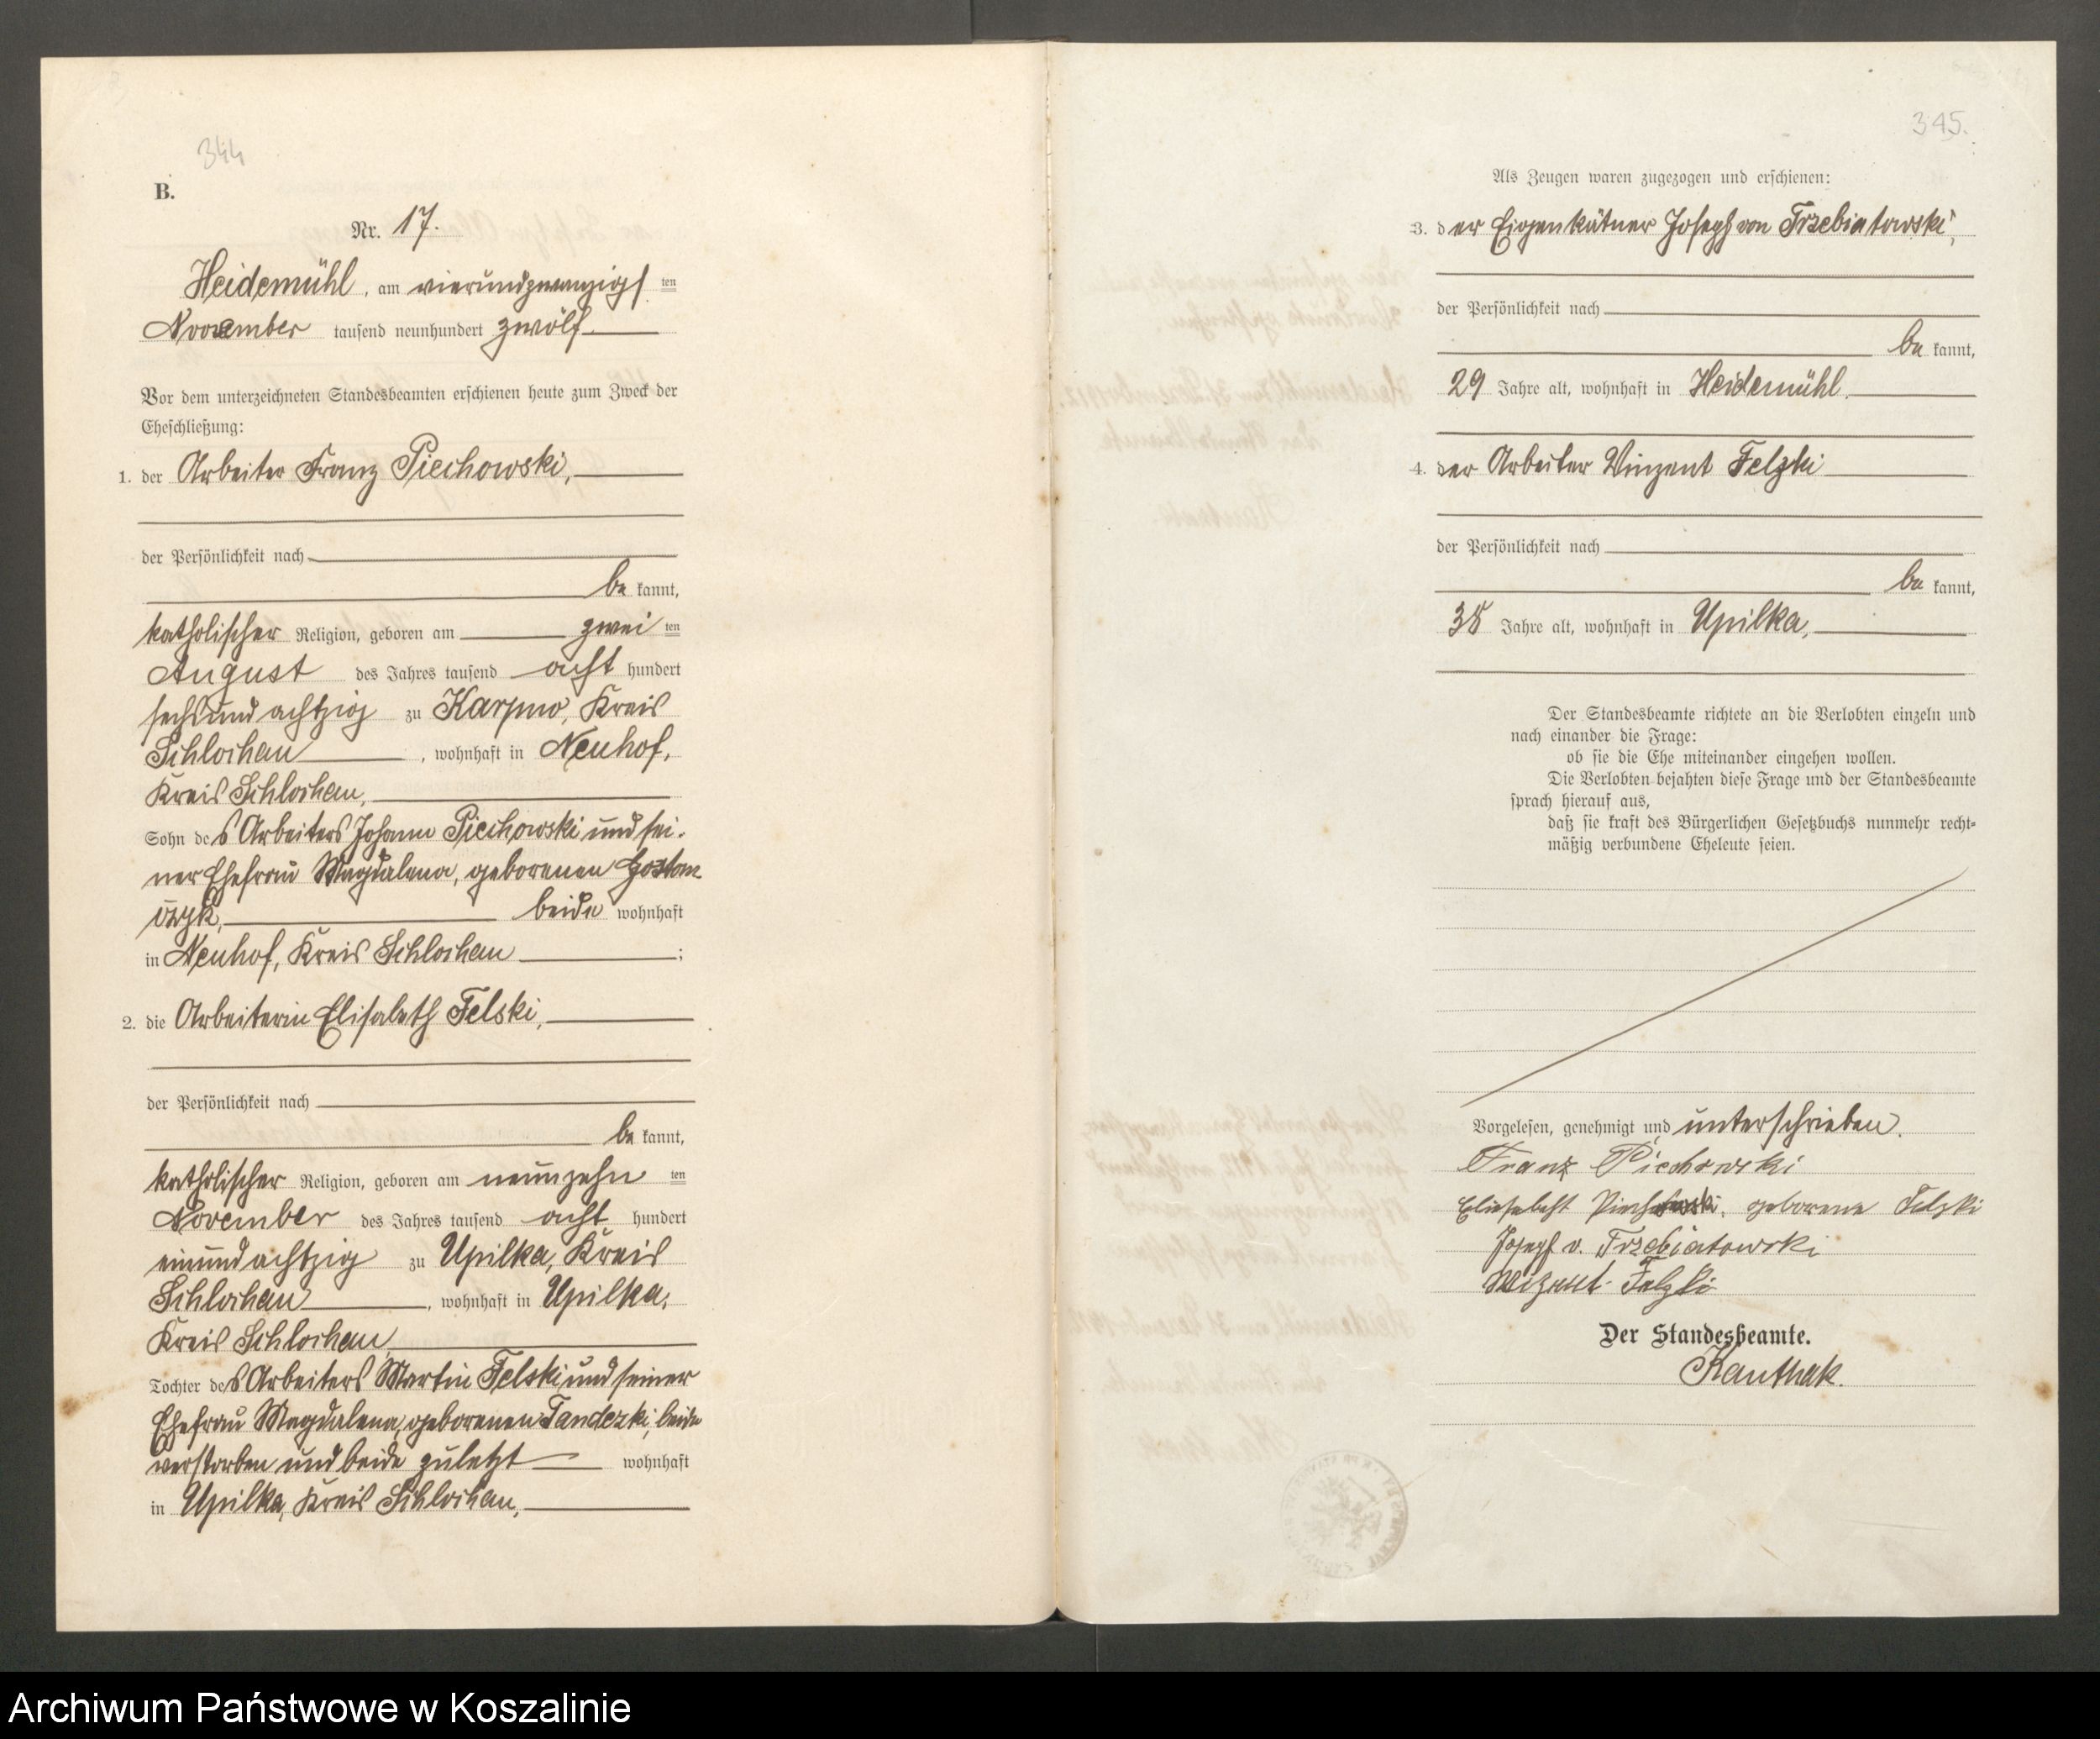 344
B.
Nr. 17.
Heidemühl, am vierundzwanzigsten
November tausend neunhundert zwölf.
Vor dem unterzeichneten Standesbeamten erschienen heute zum Zweck der
Eheschließung:
1. der Arbeiter Franz Piechowski,
der Persönlichkeit nach
bekannt,
katholischer Religion, geboren am zweiten
August des Jahres tausend achthundert
sechsundachtzig zu Karpno, Kreis
Schlochau, wohnhaft in Neuhof,
Kreis Schlochau,
Sohn des Arbeiters Johann Piechowski und sei-
ner Ehefrau Magdalena, geborenen
beide wohnhaft
in Neuhof, Kreis Schlochau;
2. die Arbeiterin Elisabeth Felski,
der Persönlichkeit nach
bekannt,
katholischer Religion, geboren am neunzehnten
November des Jahres tausend achthundert
einundachtzig zu Upilka, Kreis
Schlochau, wohnhaft in Upilka,
Kreis Schlochau,
Tochter des Arbeiters Martin Felski und seiner
Ehefrau Magdalena, geborenen Tandezki, beide
verstorben und beide zuletzt wohnhaft
in Upilka, Kreis Schlochau,
345.
Als Zeugen waren zugezogen und erschienen:
3. der Eigenkätner Joseph von Trzebiatowski,
der Persönlichkeit nach
bekannt,
29 Jahre alt, wohnhaft in Heidemühl.
4. der Arbeiter Vinzent Felzki
der Persönlichkeit nach
bekannt,
38 Jahre alt, wohnhaft in Upilka,
Der Standesbeamte richtete an die Verlobten einzeln und
nach einander die Frage:
ob sie die Ehe miteinander eingehen wollen.
Die Verlobten bejahten diese Frage und der Standesbeamte
sprach hierauf aus,
daß sie kraft des Bürgerlichen Gesetzbuchs nunmehr recht-
mäßig verbundene Eheleute seien.
Vorgelesen, genehmigt und unterschrieben.
Franz Piechowski
Piechowski, geborene Felzki
Joseph v. Trzebiatowski
Felzki
Der Standesbeamte.
Kauthak.
Archiwum Państwowe w Koszalinie